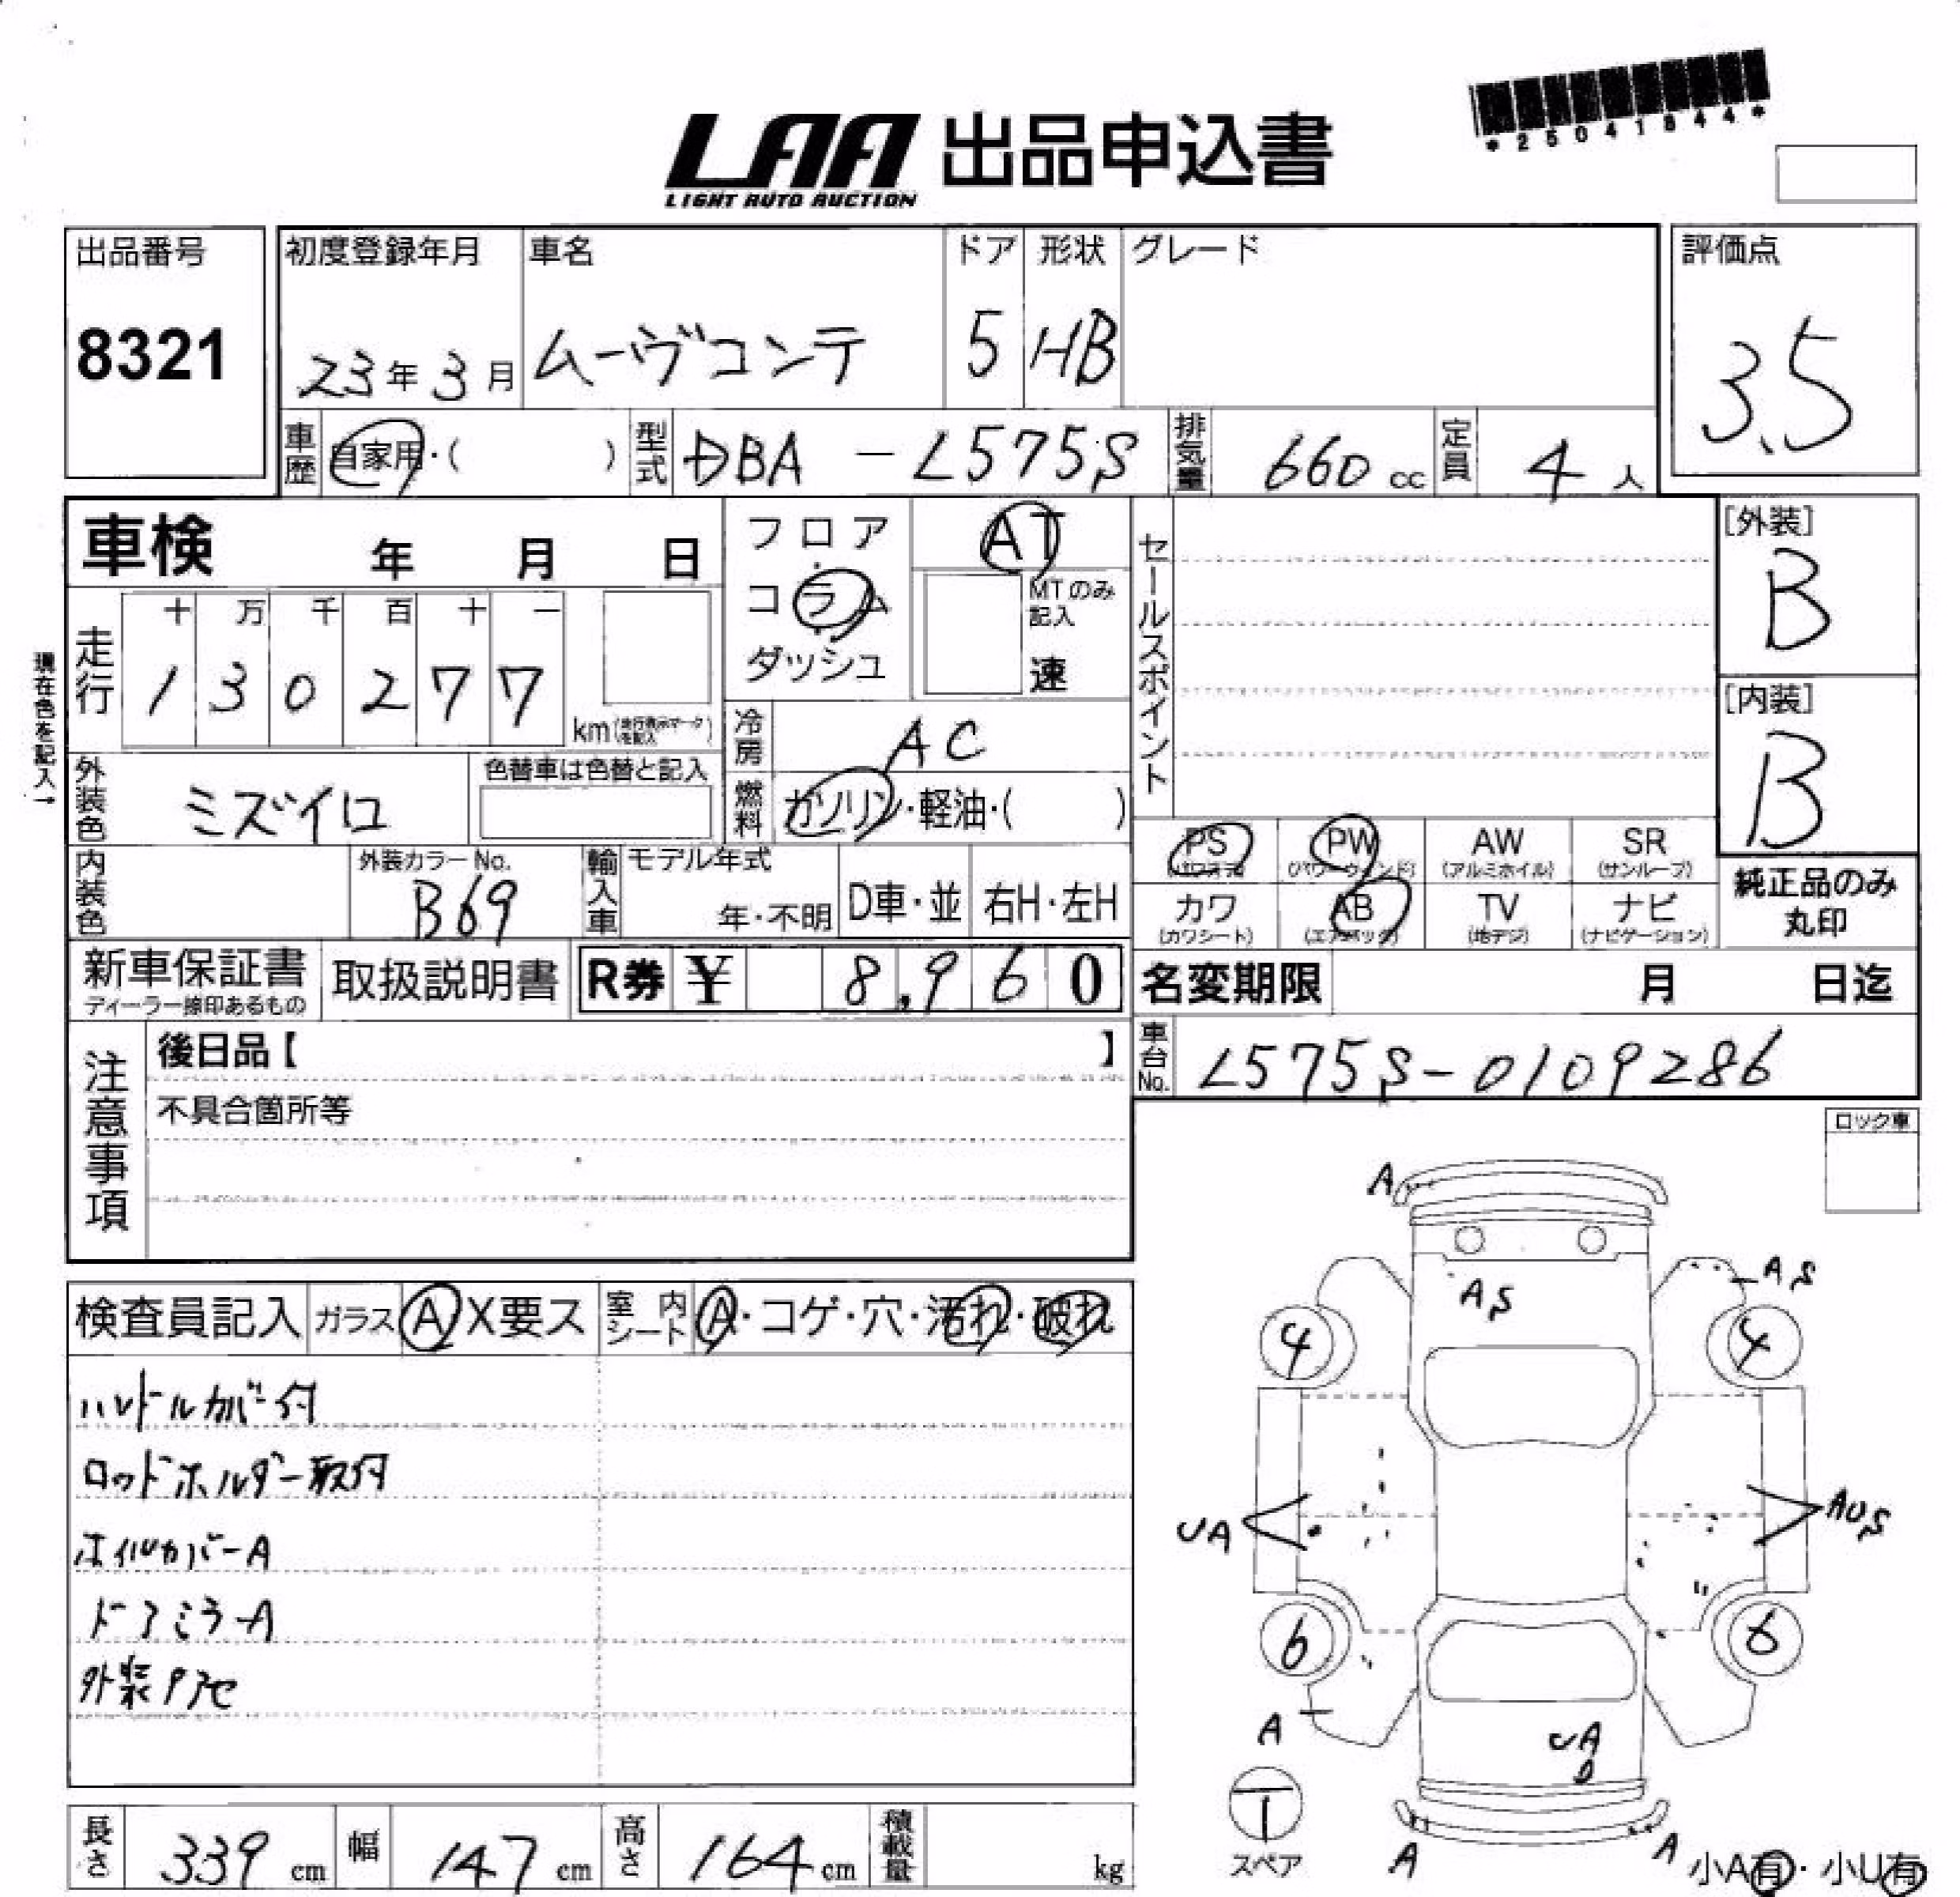 *25041844*
LAA 出品申込書
LIGHT AUTO AUCTION
出品番号
8321
初度登録年月
23年3月
車名
ムーヴコンテ
ドア
5
形状
HB
グレード
評価点
3.5
車歴 自家用・( )
型式 DBA - L575S
排気量 660 cc
定員 4 人
車検 年 月 日
フロア・コラム・ダッシュ
AT
MTのみ記入
速
セールスポイント
[外装]
B
[内装]
B
現在色を記入→
走行
十 万 千 百 十 一
1 3 0 2 7 7
km(走行表示マークを記入)
冷房 AC
外装色 ミズイロ
色替車は色替と記入
燃料 ガソリン・軽油・( )
PS (パワステ)
PW (パワーウィンド)
AW (アルミホイル)
SR (サンルーフ)
カワ (カワシート)
AB (エアバッグ)
TV (地デジ)
ナビ (ナビゲーション)
純正品のみ
丸印
内装色
外装カラーNo.
B69
輸入車
モデル年式
年・不明
D車・並
右H・左H
新車保証書
ディーラー捺印あるもの
取扱説明書
R券 ¥ 8,960
名変期限 月 日迄
車台No. L575S-0109286
注意事項
後日品【 】
不具合箇所等
ロック車
検査員記入
ガラス A X要ス
室内シート A・コゲ・穴・汚れ・破れ
ハンドルカバー付
ロッドホルダー取付
ホイルカバーA
ドアミラーA
外装アセ
A
AS
AS
4
4
UA
AUS
6
6
A
UA
A
A
スペア
小A有・小U有
長さ 339 cm
幅 147 cm
高さ 164 cm
積載量 kg